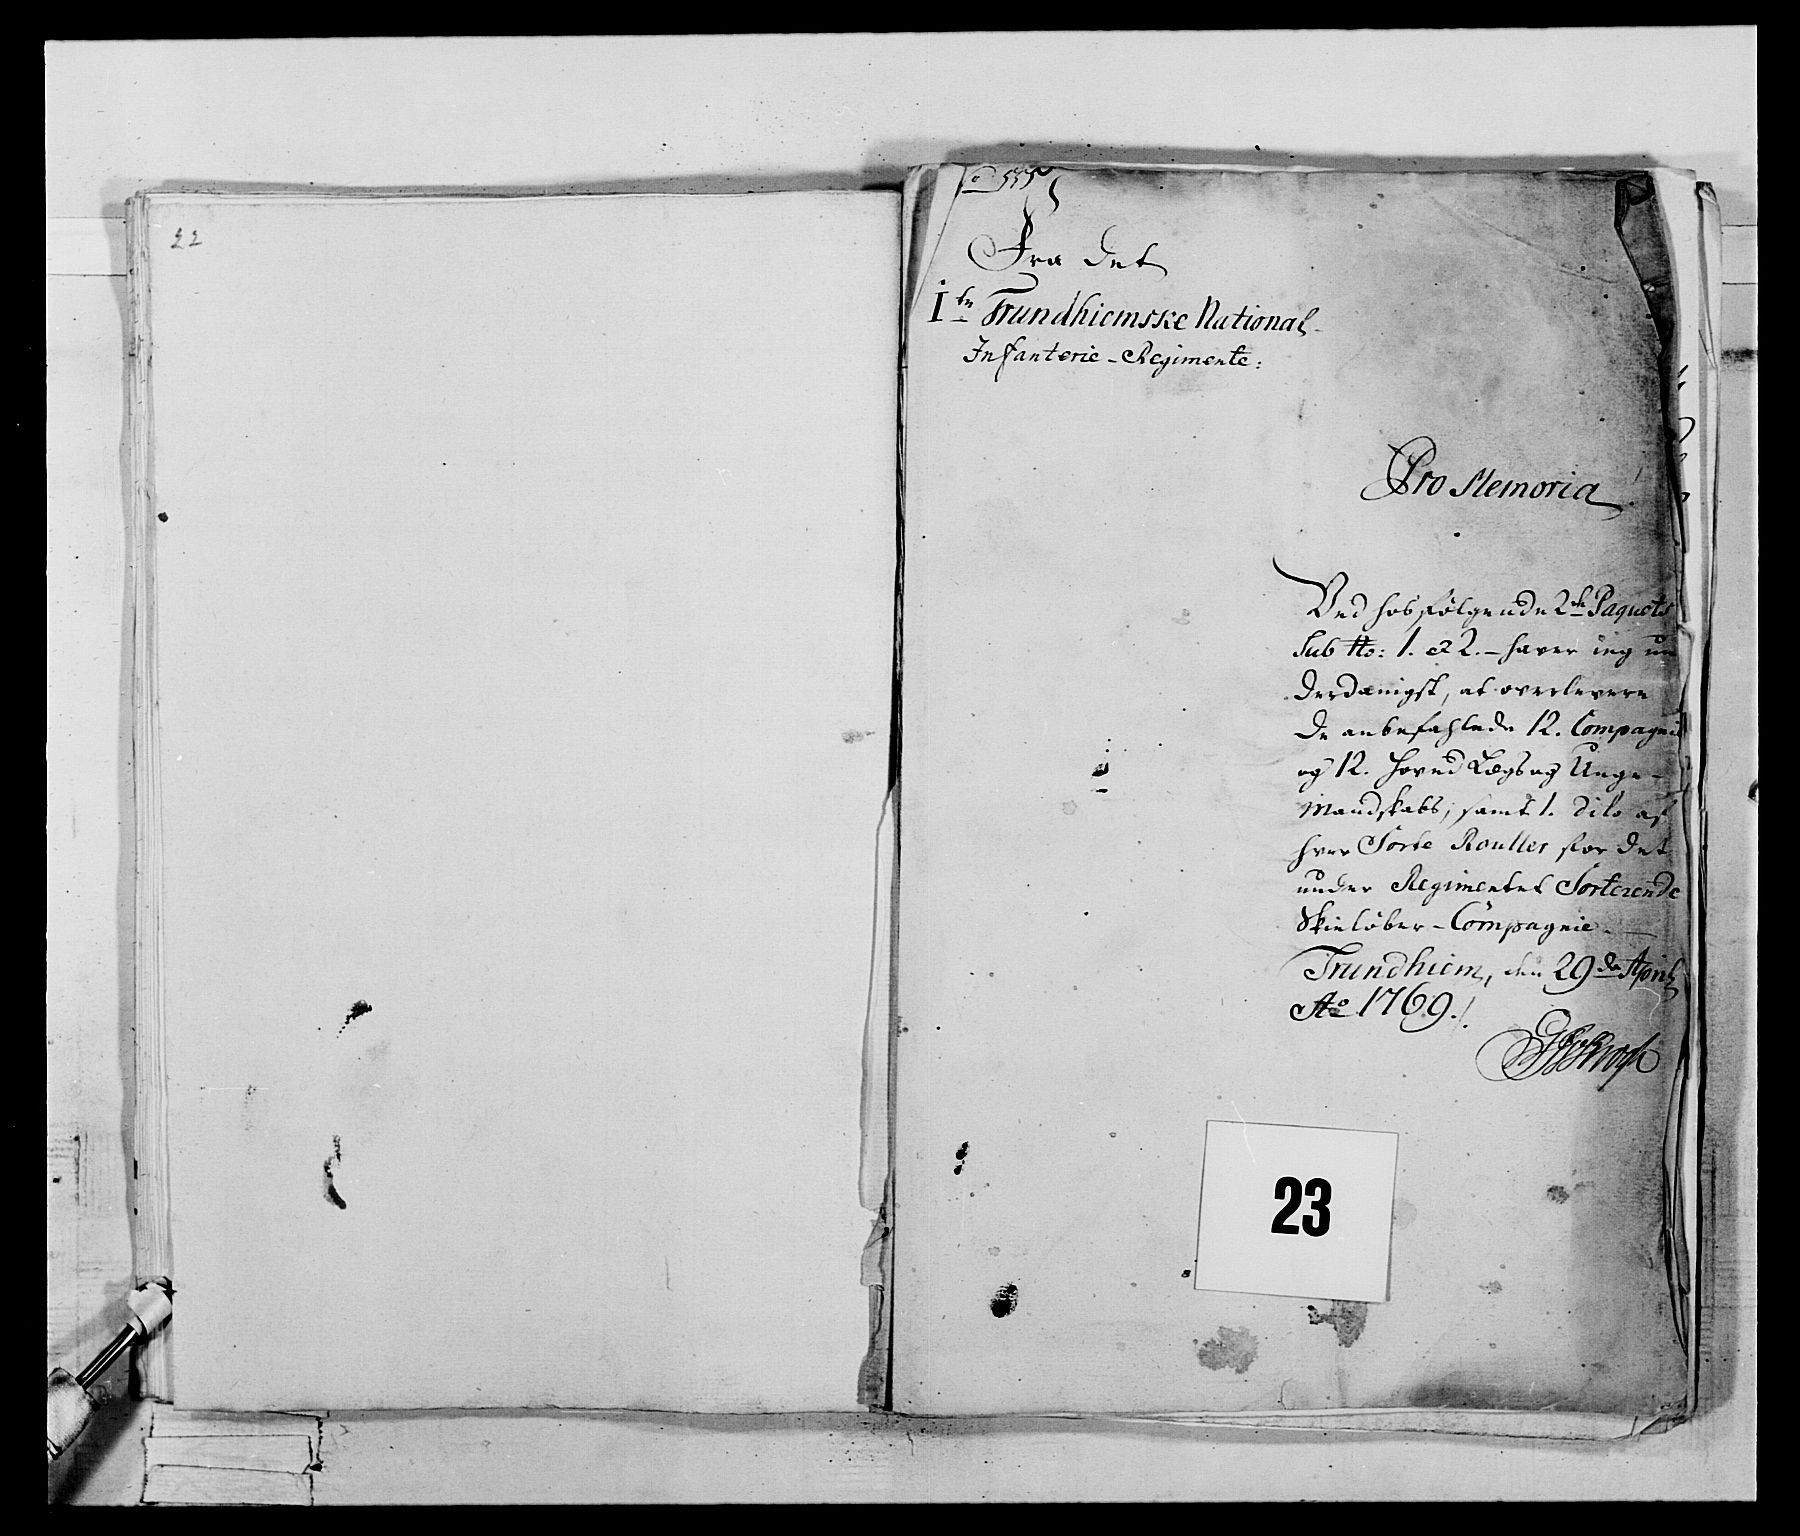 22
555
Fra det
1te Trundhiemske National
Infanterie-Regimente:
Pro Memoria
Ved hosfølgende 2de Paquets
Sub No: 1. et 2. – haver ieg un
derdanigst, at overlevere
de anbefahlede 12. Compagnie
og 12. Hoved Lægs og Unge-
Mandskabs, samt 1. dito af
hver Sorte Roulles for det
under Regimentet Sorterende
Skieløber-Compagnie.
Trundhiem, den 29de April
Ao 1769.
23